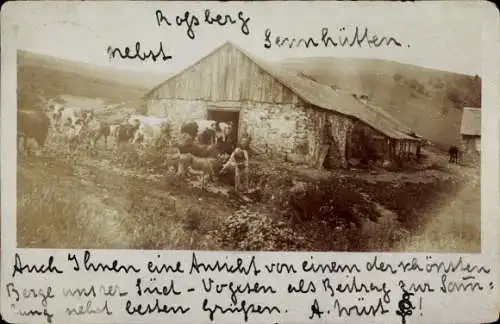 Roßberg
nebst Sennhütten.
Auch Ihnen eine Ansicht von einem der schönsten
Berge unsrer Süd-Vogesen als Beitrag zur Samm-
lung nebst besten Grüßen. A. Wüst !